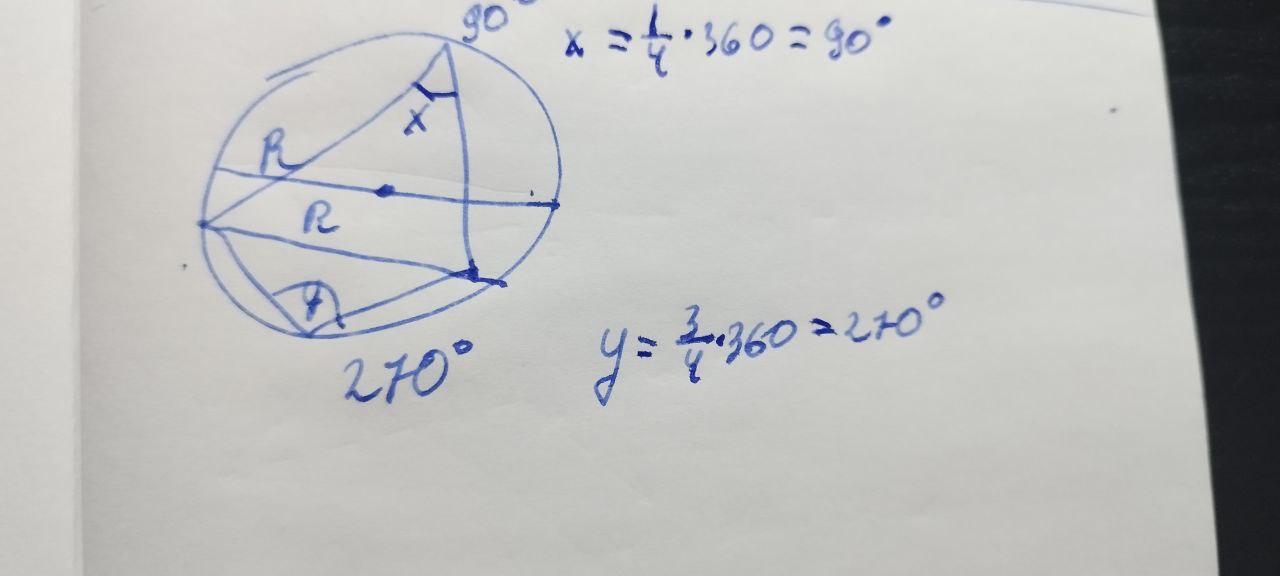 90°
x = 1/4 · 360 = 90°
x
R
R
y
270°
y = 3/4 · 360 = 270°